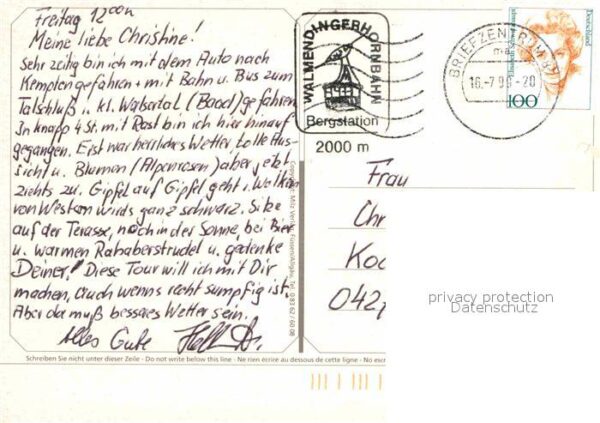 Freitag 12ººh
Meine liebe Christine!
Sehr zeitig bin ich mit dem Auto nach
Kempten gefahren + mit Bahn u. Bus zum
Talschluß i. kl. Walsertal (Baad) gefahren
In knapp 4 St. mit Rast bin ich hier hinauf
gegangen. Erst war herrliches Wetter tolle Aus-
sicht u. Blumen (Alpenrosen) aber jetzt
ziehts zu. Gipfel auf Gipfel geht i. Wolken
von Westen wirds ganz schwarz. Sitze
auf der Terasse, noch in der Sonne bei Bier
u. warmen Rahaberstrudel u. gedenke
Deiner! Diese Tour will ich mit Dir
machen, auch wenns recht sumpfig ist.
Aber da muß besseres Wetter sein.
Alles Gute
Schreiben Sie nicht unter dieser Zeile - Do not write below this line - Ne rien écrire au dessous de cette ligne - No escri
WALMENDINGERHORNBAHN
Bergstation
2000 m
BRIEFZENTRUM 87
16.-7.96-20
Deutschland
100
Frau
Chr
Koc
042
privacy protection
Datenschutz